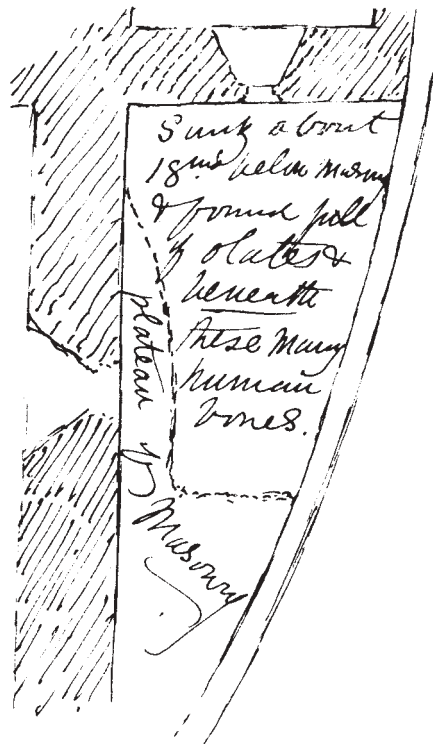 Sunk about
18ins below masonry
& found full
of slates &
beneath
these many
human
bones.
plateau of Masonry